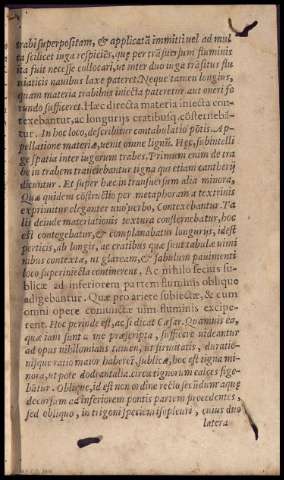 trabi superpositam, & applicatā immitti vel ad mul
ta scilicet iuga respiciēs, quę per trāsuersum fluminis
ita fuit necesse collocari, ut inter duo iuga trāsitus flu
uiaticis nauibus laxe pateret. Neque tamen longius,
quam materia trabibus iniecta pateretur aut oneri fe
rundo sufficeret. Hæc directa materia iniecta con-
texebantur, ac longurijs cratibusq; cōsternebā-
tur. In hoc loco, describitur contabulatio pōtis. Ap-
pellatione materiæ, uenit omne lignū. Hęc, subintelli
ge spatia inter iugorum trabes. Primum enim de tra
be in trabem traijciebantur tigna qui etiam cantherij
dicuntur. Et super hæc in transuersum alia minora,
Quæ quidem cōstructio per metaphoram a textrinis
exprimitur eleganter uno uerbo, Contexebantur. Ta
li deinde materiationis textura consternebatur, hoc
est contegebatur, & complanabatur longurijs, id est
perticis, ab longis, ac cratibus quæ sunt tabulæ uimi
nibus contextæ, ut glaream, & sabulum pauimenti
loco superiniecta continerent. Ac nihilo secius su-
blicæ ad inferiorem partem fluminis oblique
adigebantur. Quæ pro ariete subiectæ, & cum
omni opere coniunctæ uim fluminis excipe-
rent. Hoc perinde est, ac si dicat Cæsar. Quamuis ea,
quæ iam sunt a me præscripta, sufficere uideantur
ad opus nihilominus tamen, ut firmitatis, duratio-
nisque ratio maior haberet, sublicæ, hoc est tigna mi-
nora, ut pote dodrantalia circa tignorum calces fige-
bātur. Oblique, id est non ordine recto secūdum aquę
decursum ad inferiorem pontis partem præcedentes,
sed obliquo, in trigoni speciem isopleuri, cuius duo
latera